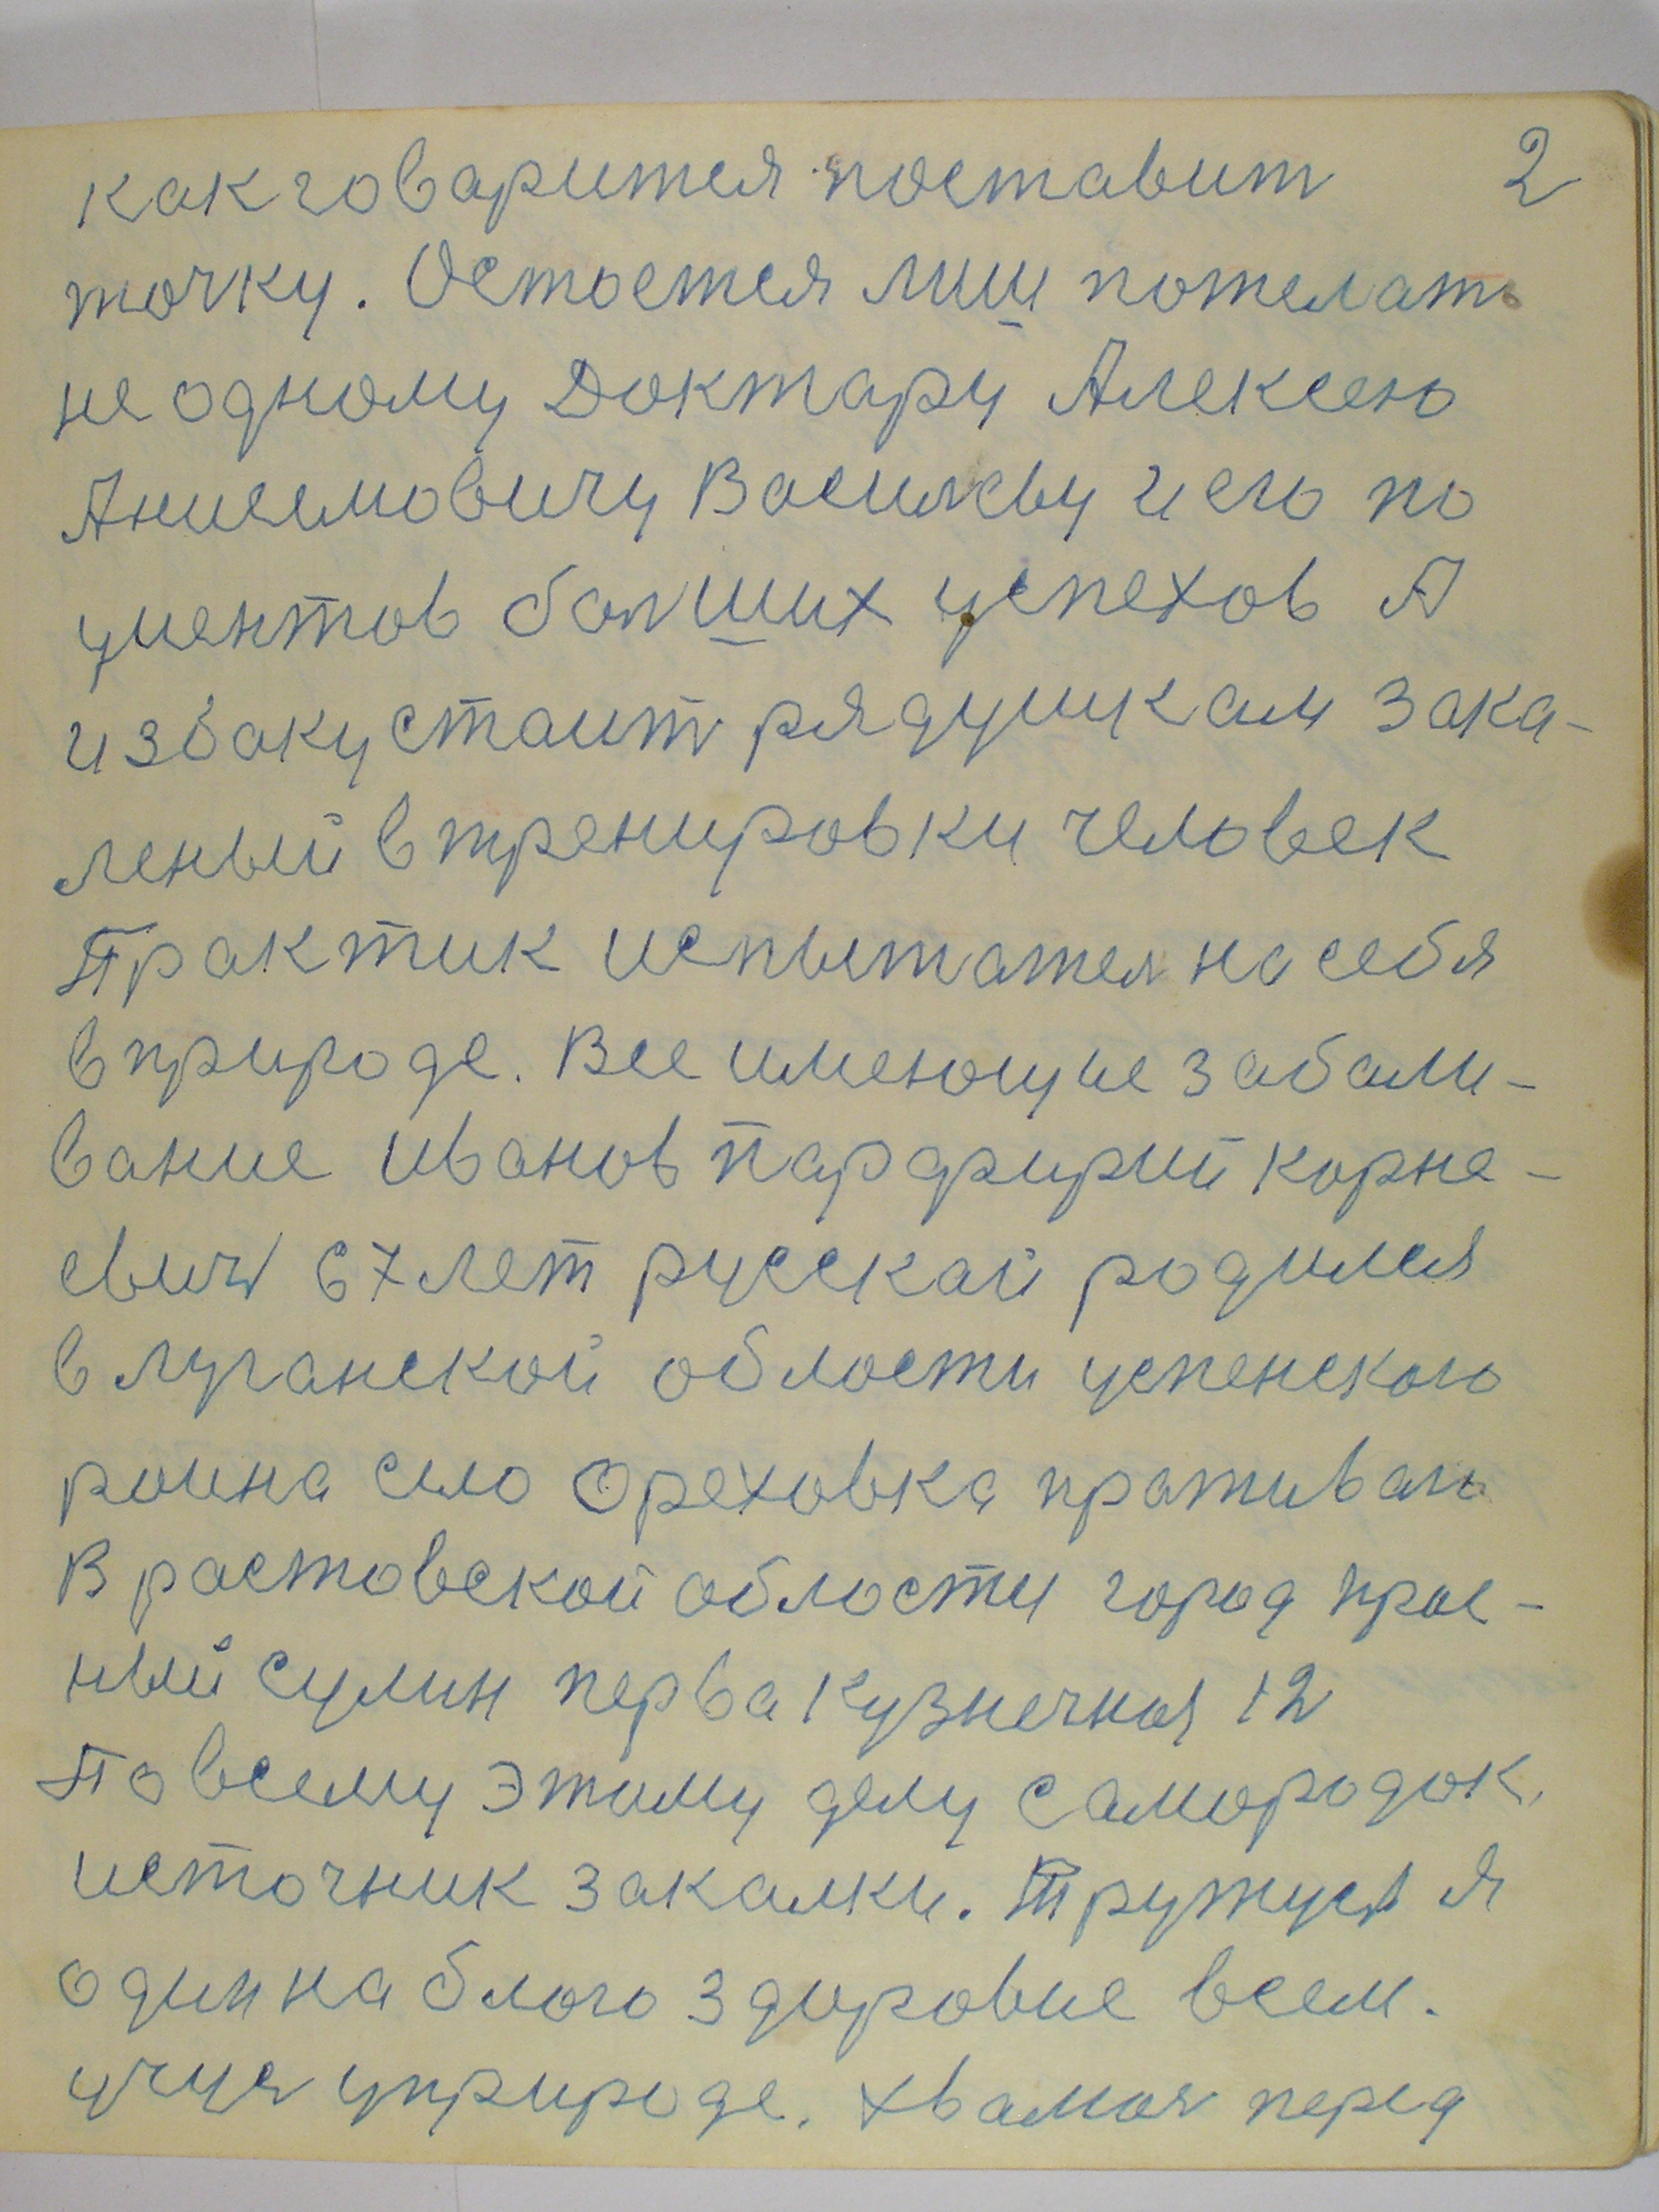 2
как говарится поставит
точку. Остается лиш пожелать
не одному Доктару Алексею
Анисимовичу Василеву и его по
циентов болших успехов А
из баку стаит рядушкам зака-
леный в тренировки человек
Практик испытател на себя
в природе. Все имеющие забали-
вание иванов парфирий корне-
евич 67 лет русскай родился
в луганской области успенского
роина село Ореховка праживаю
В растовской области город крас-
ный сулин перва кузнечная 12
По всему этому делу самородок
источник закалки. Тружусь я
один на благо здоровие всем.
учуся у природе. хвалюся перед